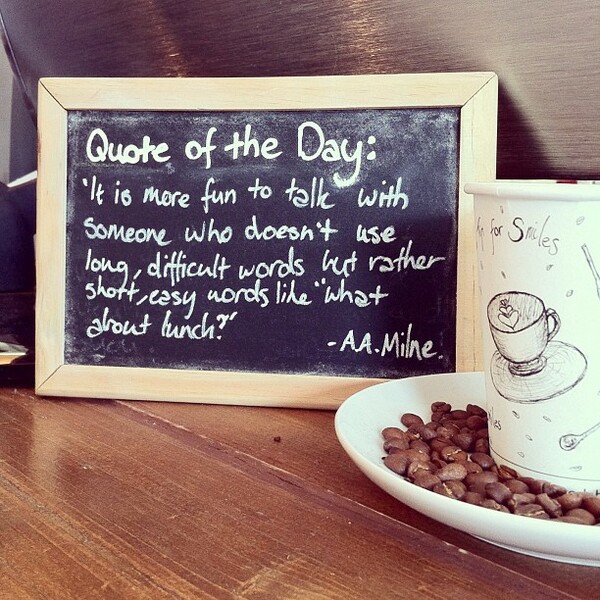 Quote of the Day:
"It is more fun to talk with
someone who doesn't use
long, difficult words but rather
short, easy words like "what
about lunch?"
-A.A. Milne.
for Smiles